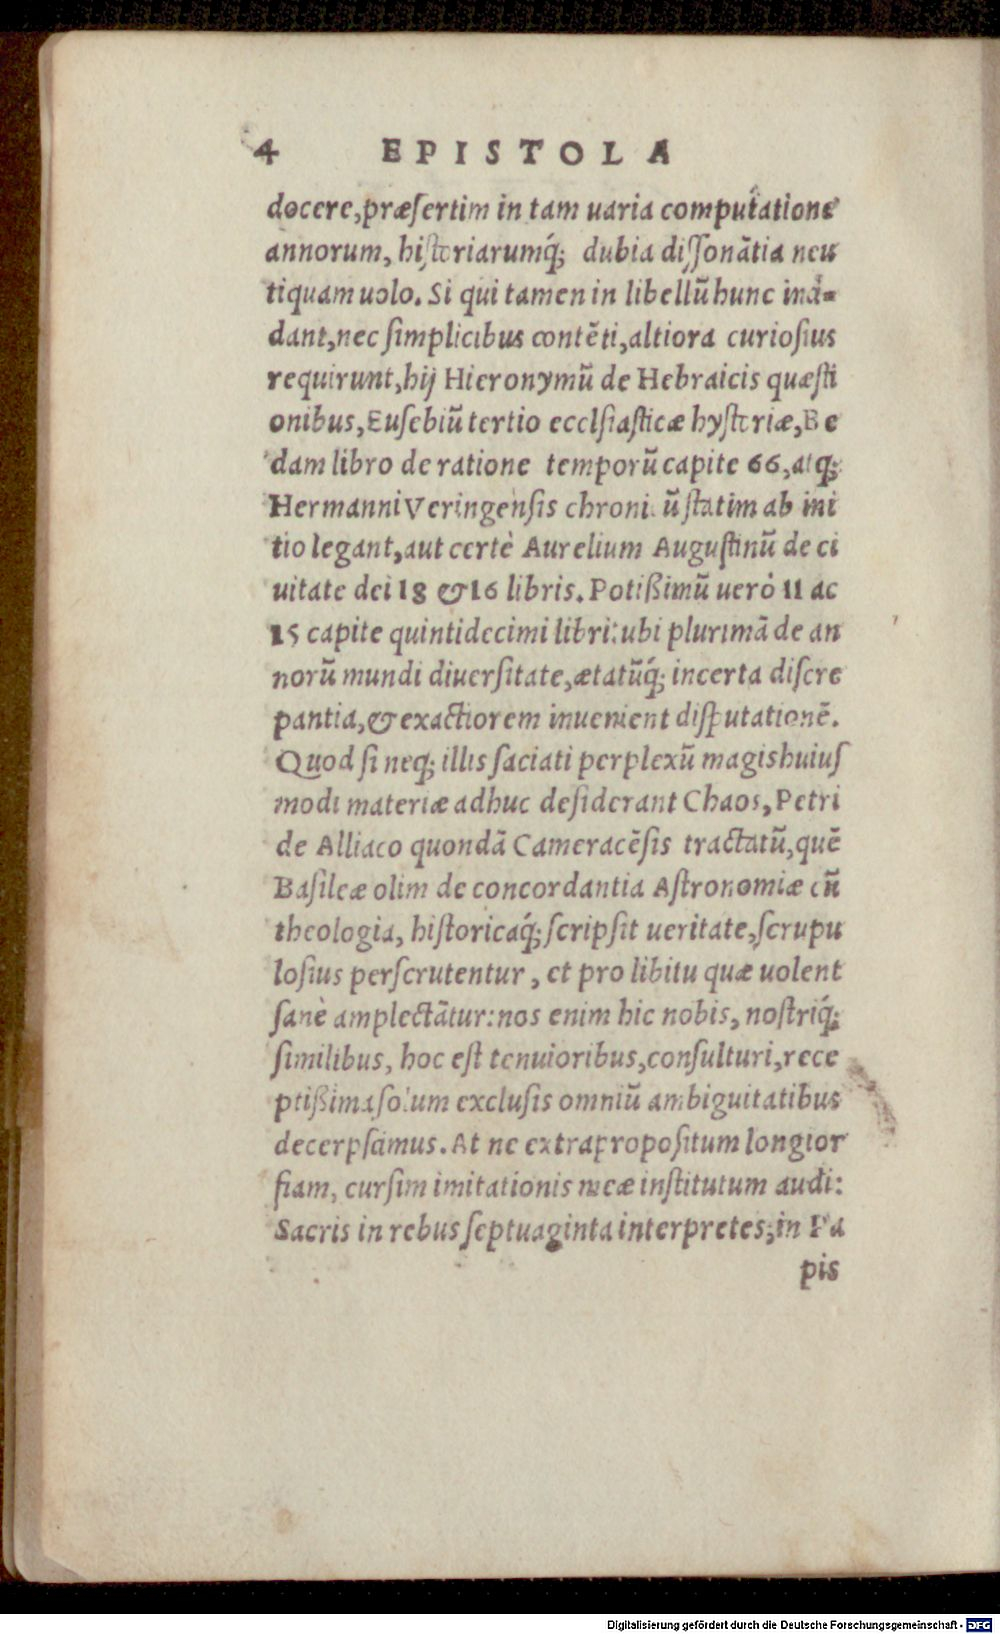 4 EPISTOLA
docere, præſertim in tam uaria computatione
annorum, hiſtoriarumq́; dubia diſſonãtia neu
tiquam uolo. Si qui tamen in libellũ hunc incĩ-
dant, nec ſimplicibus contẽti, altiora curioſius
requirunt, hij Hieronymũ de Hebraicis quæſti
onibus, Euſebiũ tertio ecclſiaſticæ hyſtoriæ, Be
dam libro de ratione temporũ capite 66, atq;
Hermanni Veringenſis chroni ũ ſtatim ab ini
tio legant, aut certè Aurelium Auguſtinũ de ci
uitate dei 18 & 16 libris. Potißimũ uerò 11 ac
15 capite quintidecimi libri: ubi plurimã de an
norũ mundi diuerſitate, ætatũq́; incerta diſcre
pantia, & exactiorem inuenient diſputationẽ.
Quod ſi neq; illis ſaciati perplexũ magis huiuſ
modi materiæ adhuc deſiderant Chaos, Petri
de Alliaco quondã Cameracẽſis tractatũ, quẽ
Baſileæ olim de concordantia Aſtronomiæ cũ
theologia, hiſtoricaq́; ſcripſit ueritate, ſcrupu
loſius perſcrutentur, et pro libitu quæ uolent
ſanè amplectãtur: nos enim hic nobis, noſtriq́;
ſimilibus, hoc eſt tenuioribus, conſulturi, rece
ptißima ſolum excluſis omniũ ambiguitatibus
decerpſimus. At ne extra propoſitum longior
fiam, curſim imitationis meæ inſtitutum audi:
Sacris in rebus ſeptuaginta interpretes; in Pa
pis
Digitalisierung gefördert durch die Deutsche Forschungsgemeinschaft - DFG